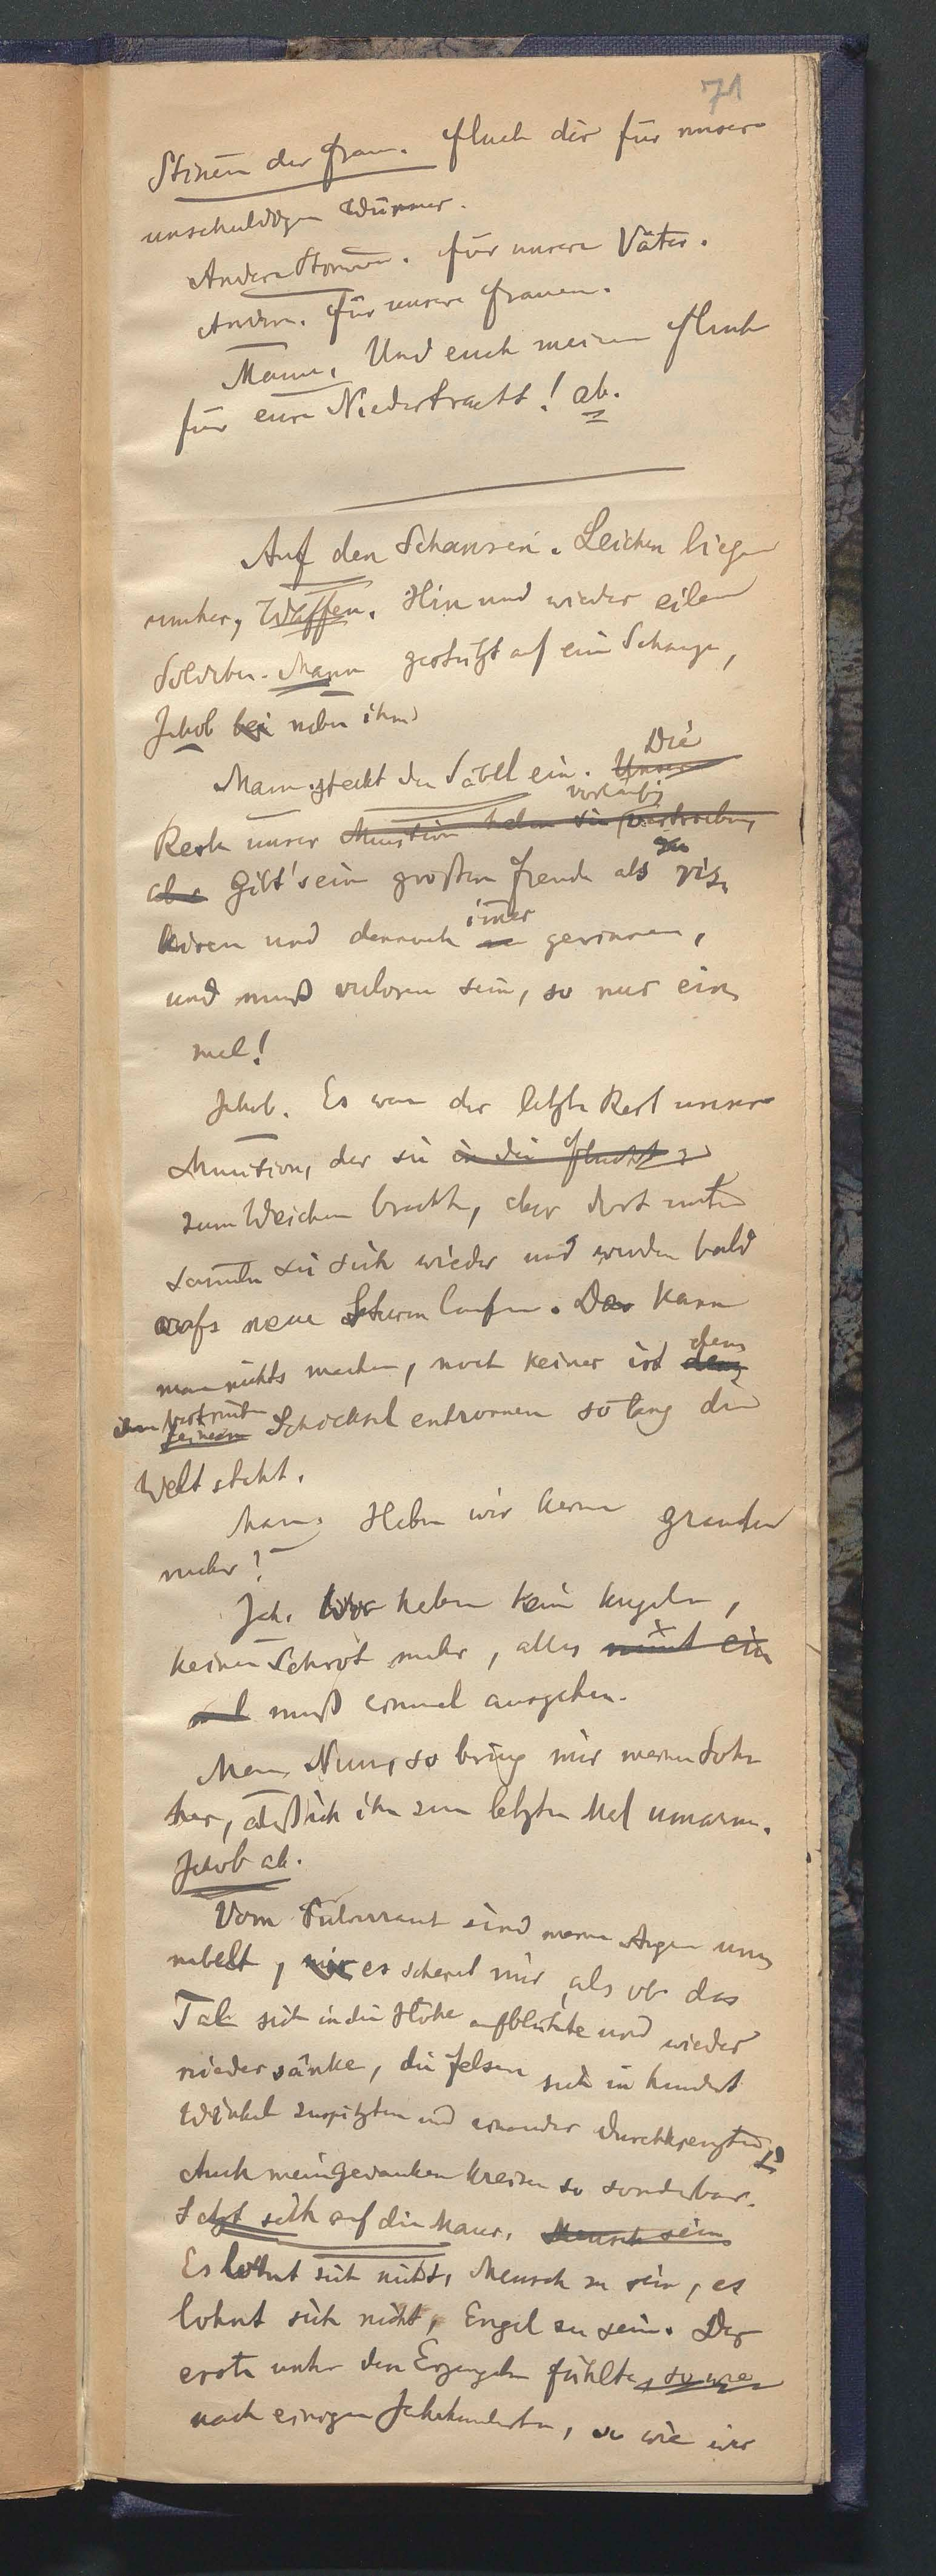 71
Stimen der Frau. Fluch dir für unsere
unschuldigen Würmer.
Andere Stimmen. Für unsere Väter.
Andere. Für unsere Frauen.
Mann. Und euch meinen Fluch
für eure Niedertracht! ab.
Auf den Schanzen. Leichen liegen
umher, Waffen. Hin und wieder eilen
Soldaten. Mann gestützt auf eine Schanze,
Jakob bei neben ihm
Mann. steckt den Säbel ein. Unser Die
Reste unserer Munition haben sie vorläufig vertrieben,
aber Gibt's ein großen Freude als zu ris,
kiren und dennoch immer gewinnen,
und muß verloren sein, so nur ein,
mal!
Jakob. Es war der letzte Rest unserer
Munition, der sie in die Flucht
zum Weichen brachte, aber dort unten
sammeln sie sich wieder und werden bald
aufs neue Sturm laufen. Da kann
man nichts machen, noch keiner ist dem
ihm bestimten seinem Schicksal entronnen so lang die
Welt steht.
Mann. Haben wir keine Granaten
mehr?
Jak. Wir haben keine Kugeln,
keinen Schrot mehr, alles nimt ein
mal muß einmal ausgehen.
Mann. Nun, so bring mir meinen Sohn
her, daß ich ihn zum letzten Mal umarme.
Jakob ab.
Vom Pulverrauch sind meine Augen um,
nebelt, mir es scheint mir, als ob das
Tal sich in die Höhe aufblähte und wieder
niedersänke, die Felsen sich in hundert
Winkel zuspitzten und einander durchkreuzten.
Auch meine Gedanken kreisen so sonderbar.
Setzt sich auf die Mauer. Mensch sein
Es lohnt sich nicht, Mensch zu sein, es
lohnt sich nicht, Engel zu sein. Der
erste unter den Erzengeln fühlte, so wie
nach einigen Jahrhunderten, so wie wir